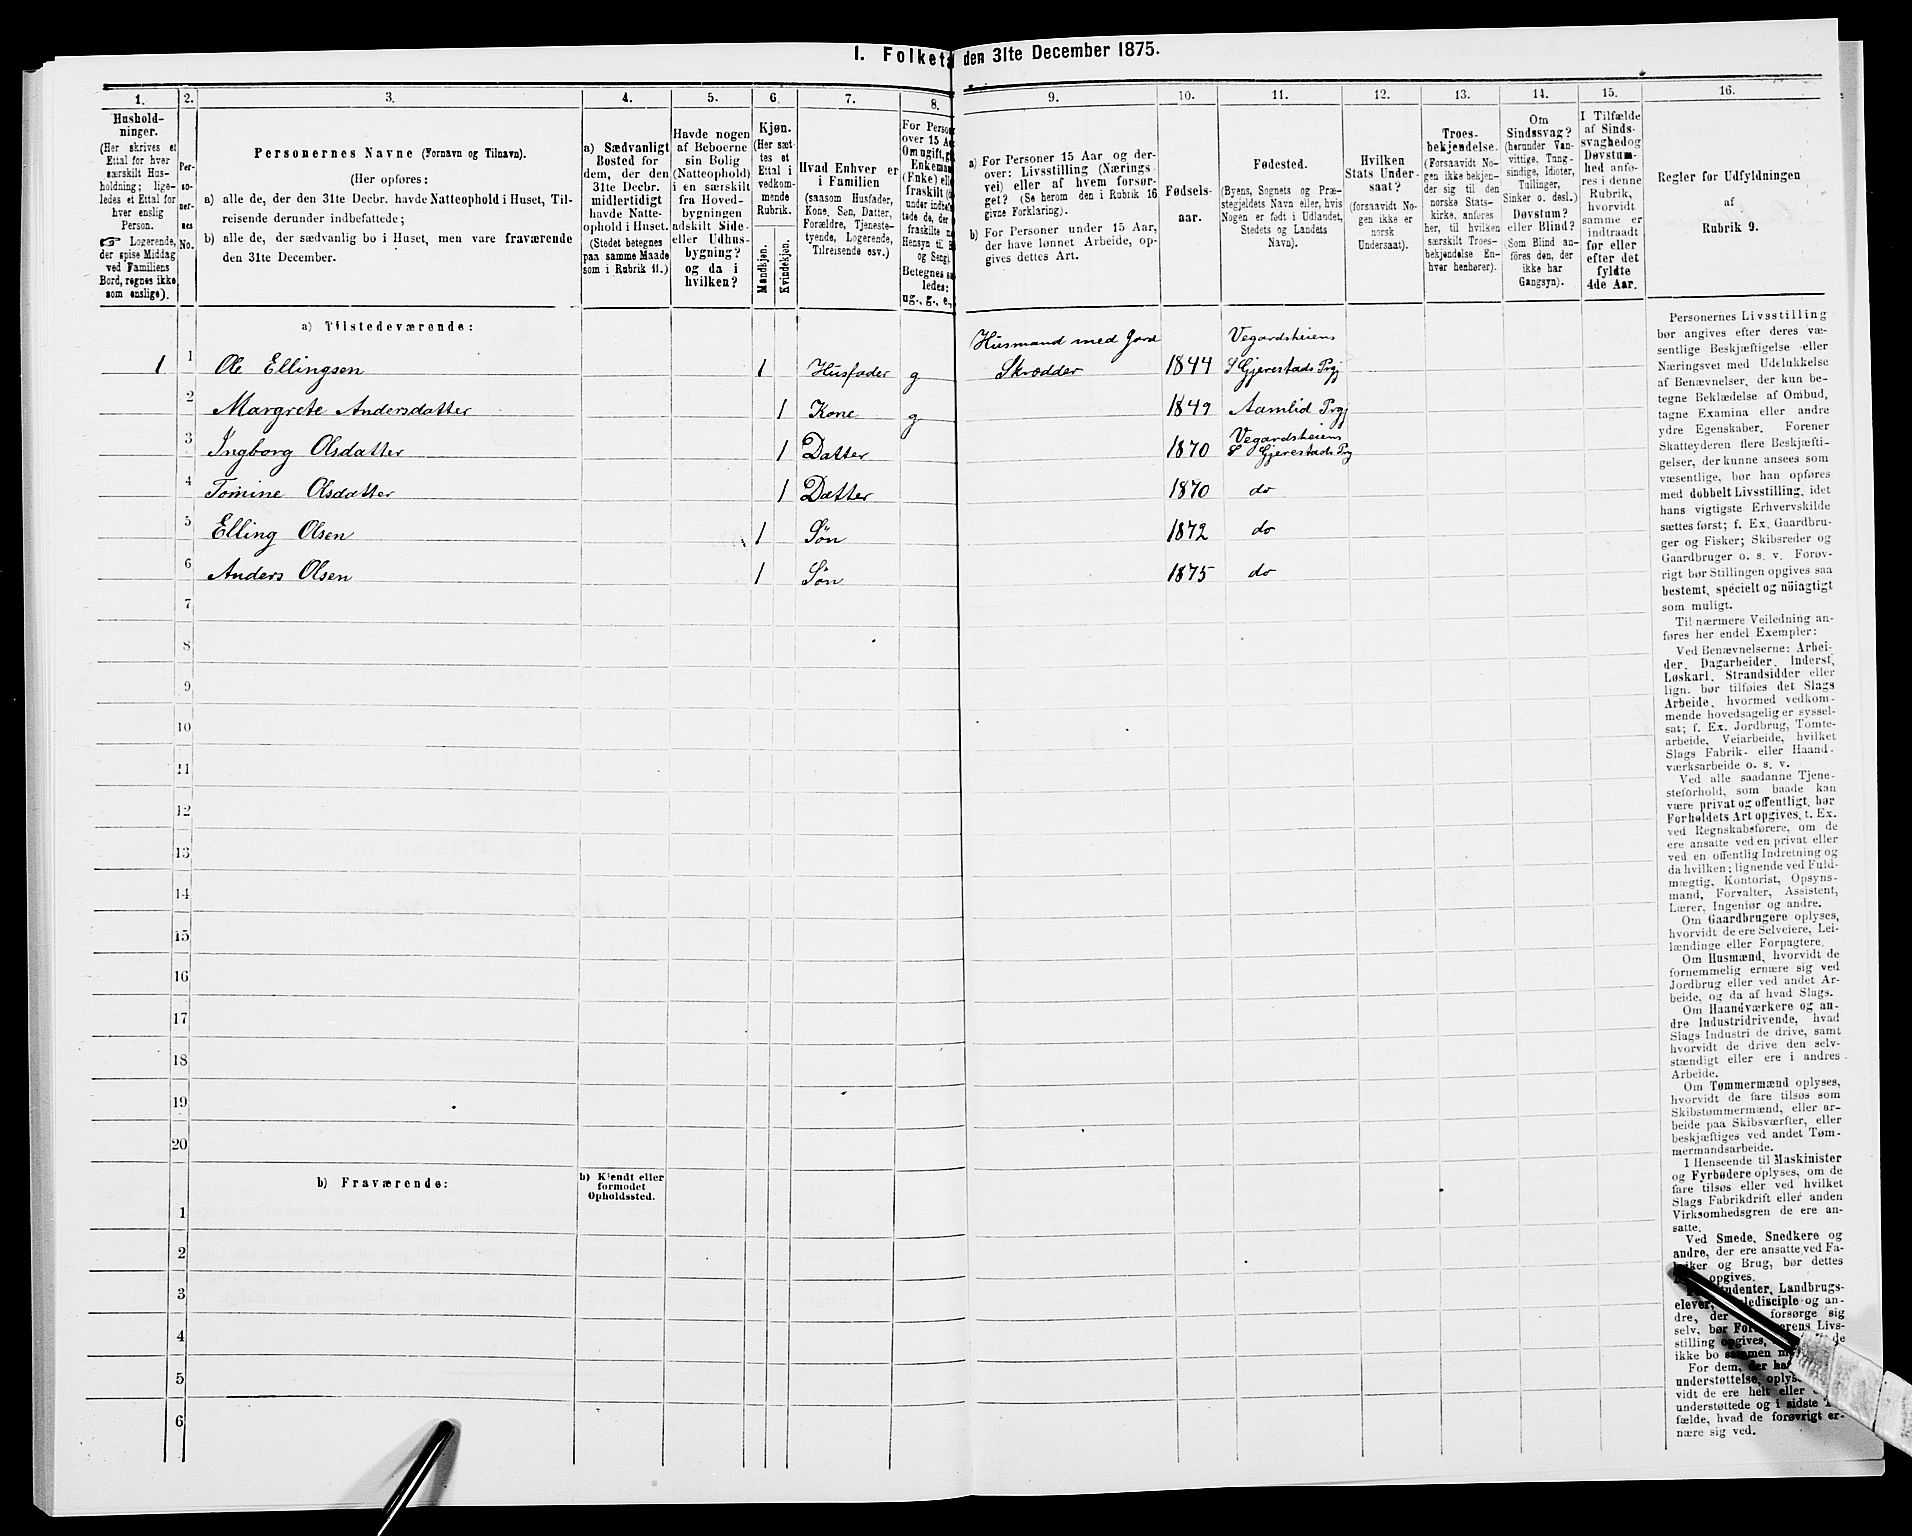 I. Folketæ den 31te December 1875.
1.
2.
3.
4.
5.
6.
7.
8.
9.
10.
11.
12.
13.
14.
15.
16.
Hushold-
ninger.
(Her skrives et
Ettal for hver
særskilt Hus-
holdning; lige-
ledes et Ettal for
hver enslig
Person.
☞ Logerende,
der spise Middag
ved Familiens
Bord, regnes ikke
som enslige).
Per-
so-
ner-
nes
No.
Personernes Navne (Fornavn og Tilnavn).
(Her opføres:
a) alle de, der den 31te Decbr. havde Natteophold i Huset, Til-
reisende derunder indbefattede;
b) alle de, der sædvanlig bo i Huset, men vare fraværende
den 31te December.
a) Sædvanligt
Bosted for
dem, der den
31te Decbr.
midlertidigt
havde Natte-
ophold i Huset.
(Stedet betegnes
paa samme Maade
som i Rubrik 11.)
Havde nogen
af Beboerne
sin Bolig
(Natteophold)
i en særskilt
fra Hoved-
bygningen
adskilt Side-
eller Udhus-
bygning?
og da i
hvilken?
Kjøn.
(Her sæt-
tes et
Ettal i
vedkom-
mende
Rubrik.
Mandkjøn.
Kvindekjøn.
Hvad Enhver er
i Familien
(saasom Husfader,
Kone, Søn, Datter,
Forældre, Tjeneste-
tyende, Logerende,
Tilreisende osv.)
For Perso
over 15 Aa
Om ugift, gi
Enkema
(Enke) elle
fraskilt (
under indbe
tede de, der
fraskilte
Hensyn til B
og Seng).
Betegnes sa
ledes:
ug., g., e.,
a) For Personer 15 Aar og der-
over: Livsstilling (Nærings
vei) eller af hvem forsør-
get? (Se herom den i Rubrik 16
givne Forklaring).
b) For Personer under 15 Aar,
der have lønnet Arbeide, op-
gives dettes Art.
Fødsels-
aar.
Fødested.
(Byens, Sognets og Præ-
stegjeldets Navn eller, hvis
Nogen er født i Udlandet,
Stedets og Landets
Navn).
Hvilken
Stats Under-
saat?
(forsaavidt No-
gen ikke er
norsk
Undersaat).
Troes-
bekjendelse.
(Forsaavidt No-
gen ikke bekjen-
der sig til den
norske Stats-
kirke, anføres
her, til hvilken
særskilt Troes-
bekjendelse En-
hver henhører).
Om
Sindssvag?
(herunder Van-
vittige, Tung-
sindige, Idioter,
Tullinger,
Sinker o. desl.)
Døvstum?
eller Blind?
(Som Blind an-
føres den, der
ikke har
Gangsyn).
I Tilfælde
af Sinds-
svaghed og
Døvstum-
hed anfø-
res i denne
Rubrik,
hvorvidt
samme er
indtraadt
før eller
efter det
fyldte
4de Aar.
Regler for Udfyldningen
af
Rubrik 9.
a) Tilstedeværende:
1 1 Ole Ellingsen 1 Husfader g Husmand med Jord Skrædder 1844 Vegardsheiens S Gjerestads Prgj
2 Margrete Andersdatter 1 Kone g 1849 Aamlid Prgj
3 Ingborg Olsdatter 1 Datter 1870 Vegardsheiens S Gjerestads Prg
4 Tomine Olsdatter 1 Datter 1870 do
5 Elling Olsen 1 Søn 1872 do
6 Anders Olsen 1 Søn 1875 do
7
8
9
10
11
12
13
14
15
16
17
18
19
20
b) Fraværende:
b) Kjendt eller
formodet
Opholdssted.
1
2
3
4
5
6
Personernes Livsstilling
bør angives efter deres væ-
sentlige Beskjæftigelse eller
Næringsvei med Udelukkelse
af Benævnelser, der kun be-
tegne Beklædelse af Ombud,
tagne Examina eller andre
ydre Egenskaber. Forener
Skatteyderen flere Beskjæfti-
gelser, der kunne ansees som
væsentlige, bør han opføres
med dobbelt Livsstilling, idet
hans vigtigste Erhvervskilde
sættes først; f. Ex. Gaardbru-
ger og Fisker; Skibsreder og
Gaardbruger o. s. v. Forøv-
rigt bør Stillingen opgives saa
bestemt, specielt og nöiagtigt
som muligt.
Til nærmere Veiledning an-
føres her endel Exempler:
Ved Benævnelserne: Arbei-
der, Dagarbeider, Inderst,
Løskarl, Strandsidder eller
lign. bør tilføies det Slags
Arbeide, hvormed vedkom-
mende hovedsagelig er syssel-
sat; f. Ex. Jordbrug, Tomte-
arbeide, Veiarbeide, hvilket
Slags Fabrik- eller Haand-
værksarbeide o. s. v.
Ved alle saadanne Tjene-
steforhold, som baade kan
være privat og offentligt, bør
Forholdets Art opgives, t. Ex.
ved Regnskabsførere, om de
ere ansatte ved en privat eller
ved en offentlig Indretning og
da hvilken; lignende ved Fuld-
mægtig, Kontorist, Opsyns-
mand, Forvalter, Assistent,
Lærer, Ingeniør og andre.
Om Gaardbrugere oplyses,
hvorvidt de ere Selveiere, Lei-
lændinge eller Forpagtere.
Om Husmænd, hvorvidt de
fornemmelig ernære sig ved
Jordbrug eller ved andet Ar-
beide, og da af hvad Slags.
Om Haandværkere og an-
dre Industridrivende, hvad
Slags Industri de drive, samt
hvorvidt de drive den selv-
stændigt eller ere i andres
Arbeide.
Om Tømmermænd oplyses,
hvorvidt de fare tilsøs som
Skibstømmermænd, eller ar-
beide paa Skibsværfter, eller
beskjæftiges ved andet Tøm-
mermandsarbeide.
I Henseende til Maskinister
og Fyrbødere oplyses, om de
fare tilsøs eller ved hvilket
Slags Fabrikdrift eller anden
Virksomhedsgren de ere an-
satte.
Ved Smede, Snedkere og
andre, der ere ansatte ved Fa-
briker og Brug, bør dettes
opgives.
denter, Landbrugs-
elever, ledisciple og an-
dre, der forsørge sig
selv, bør For erens Livs-
stilling opgives, de
ikke bo sammen m
For dem, der ha
understøttelse, oplys
vidt de ere helt eller
understøttede og i sidste T
fælde, hvad de forøvrigt er-
nære sig ved.